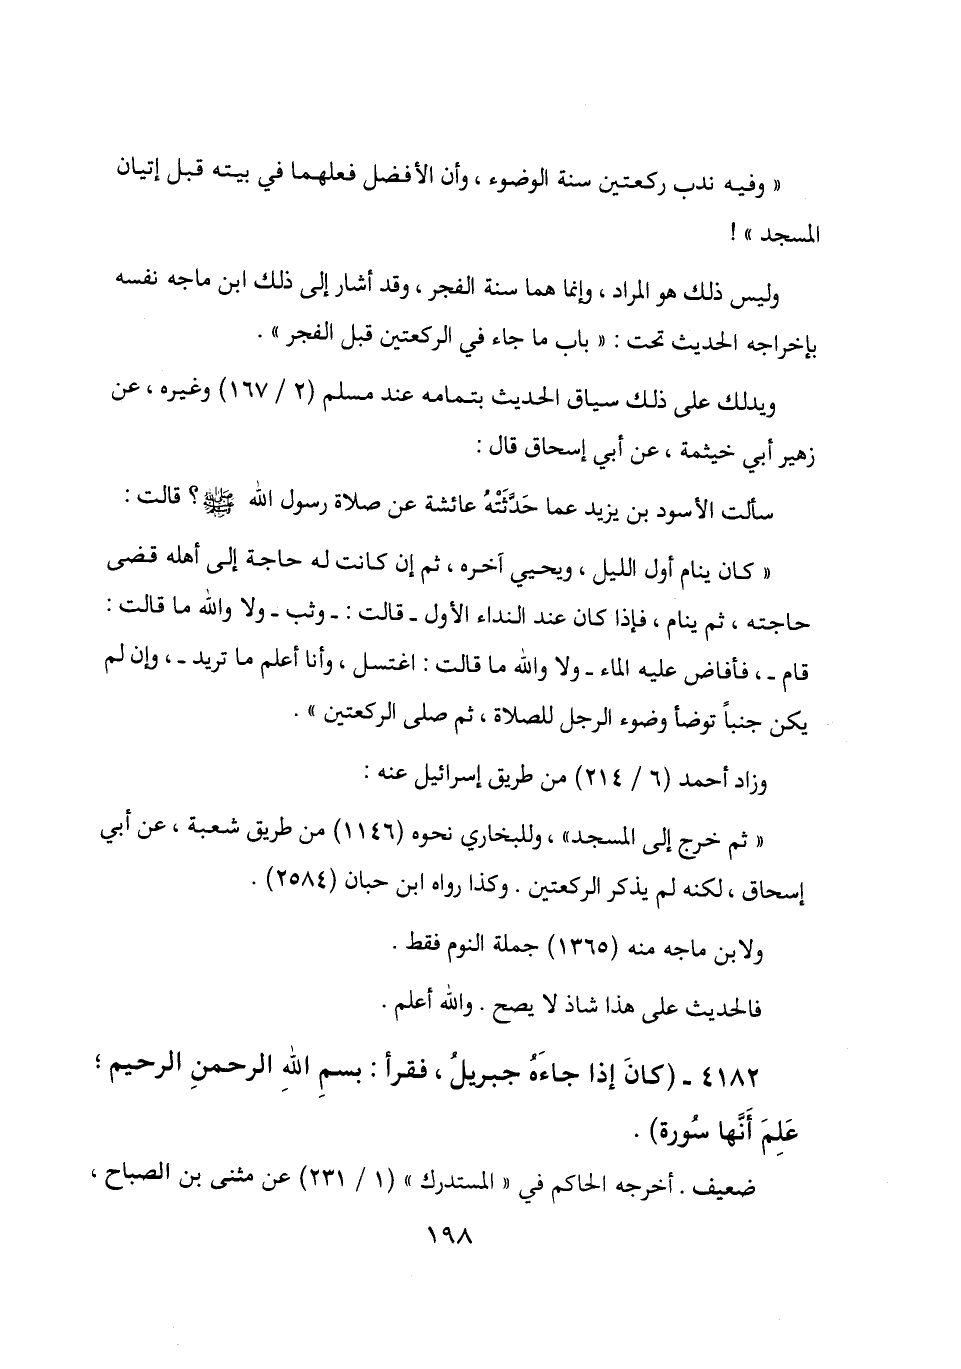 « وفيه ندب ركعتين سنة الوضوء ، وأن الأفضل فعلهما في بيته قبل إتيان
المسجد » !
وليس ذلك هو المراد ، وإنما هما سنة الفجر ، وقد أشار إلى ذلك ابن ماجه نفسه
بإخراجه الحديث تحت : « باب ما جاء في الركعتين قبل الفجر » .
ويدلك على ذلك سياق الحديث بتمامه عند مسلم (٢ / ١٦٧) وغيره ، عن
زهير أبي خيثمة ، عن أبي إسحاق قال :
سألت الأسود بن يزيد عما حَدَّثَتْهُ عائشة عن صلاة رسول الله ﷺ ؟ قالت :
« كان ينام أول الليل ، ويحيي آخره ، ثم إن كانت له حاجة إلى أهله قضى
حاجته ، ثم ينام ، فإذا كان عند النداء الأول ـ قالت : ـ وثب ـ ولا والله ما قالت :
قام ـ ، فأفاض عليه الماء ـ ولا والله ما قالت : اغتسل ، وأنا أعلم ما تريد ـ ، وإن لم
يكن جنباً توضأ وضوء الرجل للصلاة ، ثم صلى الركعتين » .
وزاد أحمد (٦ / ٢١٤) من طريق إسرائيل عنه :
« ثم خرج إلى المسجد» ، وللبخاري نحوه (١١٤٦) من طريق شعبة ، عن أبي
إسحاق ، لكنه لم يذكر الركعتين . وكذا رواه ابن حبان (٢٥٨٤) .
ولابن ماجه منه (١٣٦٥) جملة النوم فقط .
فالحديث على هذا شاذ لا يصح . والله أعلم .
٤١٨٢ ـ (كانَ إذا جاءَهُ جبريلُ ، فقرأ : بسمِ اللهِ الرحمنِ الرحيم ؛
عَلِمَ أَنَّها سُورة) .
ضعيف . أخرجه الحاكم في « المستدرك » (١ / ٢٣١) عن مثنى بن الصباح ،
١٩٨